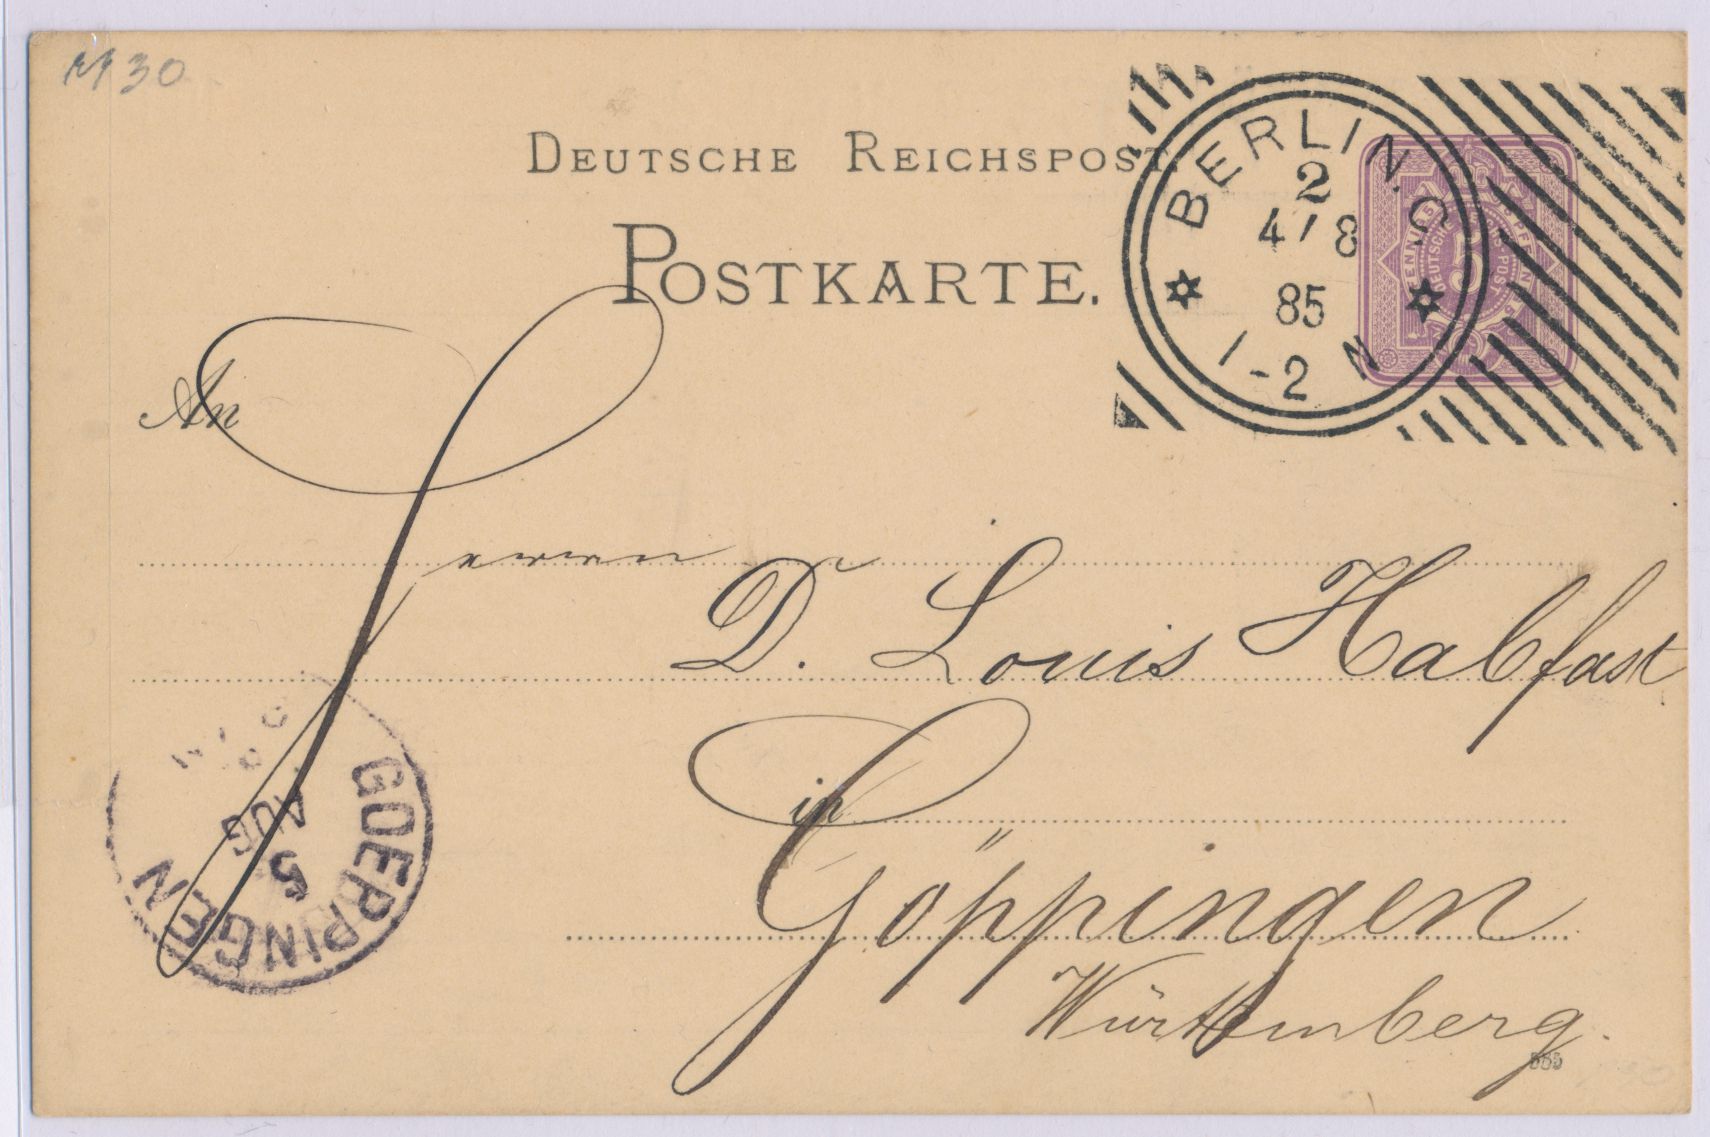 M 30
DEUTSCHE REICHSPOST
POSTKARTE.
BERLIN. C
2
4/8
85
1-2 N
PFENNIG 5
5
An
Herrn
Dr. Louis Habfast
in Göppingen
Württemberg.
GOEPPINGEN
5
AUG
585